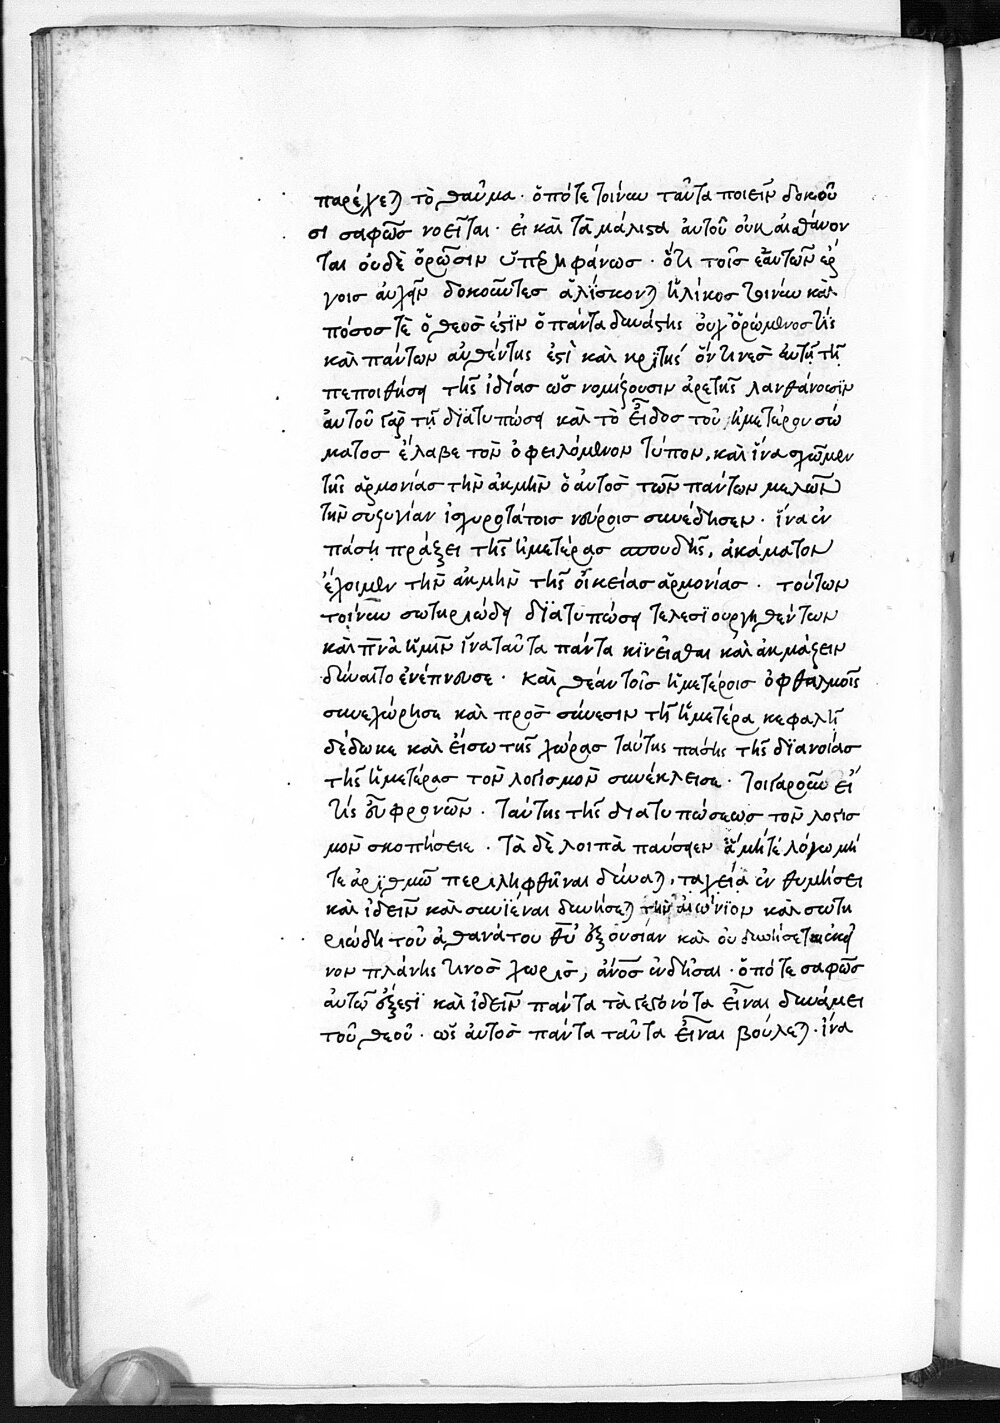 παρέχεται τὸ θαῦμα · ὁπότε τοίνυν ταῦτα ποιεῖν δοκοῦ
σι σαφῶς νοεῖται · εἰ καὶ τὰ μάλιστα αὐτοῦ οὐκ αἰσθάνον
ται οὐδὲ ὁρῶσιν ὑπερηφάνως · ὅτι τοῖς ἑαυτῶν ἔρ
γοις αὐχεῖν δοκοῦντες ἁλΐσκονται ἡλίκος τοίνυν καὶ
πόσος τὲ ὁ θεός ἐστϊν ὁ πάντα δυνάστης οὐχ ὁρώμενος τίς
καὶ πάντων αὐθέντης ἐστὶ καὶ κρϊτής ὅν τινες ἐν τῆ
πεποιθήσει τῆς ἰδίας ὡς νομίζουσιν ἀρετῆς λανθάνουσϊν
αὐτοῦ γὰρ τῆ δϊατυπώσει καὶ τὸ εἶδος τοῦ ἡμετέρου σώ
ματος ἔλαβε τὸν ὀφειλόμενον τύπον, καὶ ἵνα σχῶμεν
τῆς ἁρμονίας τὴν ἀκμὴν ὁ αὐτὸς τῶν πάντων μελῶν
τὴν συζυγίαν ἰσχυροτάτοις νεύροις συνέδησεν · ἵνα ἐν
πάση πράξει τῆς ἡμετέρας σπουδῆς, ἀκάματον
ἔχοιμεν τὴν ἀκμὴν τῆς οἰκείας ἁρμονίας · τούτων
τοίνυν σωτηριώδη δϊατυπώσει τελεσϊουργηθέντων
καὶ πνᾶ ἡμῖν ἵνα ταῦτα πάντα κϊνεῖσθαι καὶ ἀκμάζειν
δύναιτο ἐνέπνευσε · καὶ θέαν τοῖς ἡμετέροις ὀφθαλμοῖς
συνεχώρησε καὶ πρὸς σύνεσιν τῆ ἡμετέρα κεφαλῆ
δέδωκε καὶ εἴσω τῆς χώρας ταύτης πάσης τῆς δϊανοίας
τῆς ἡμετέρας τὸν λογισμὸν συνέκλεισε · τοιγαροῦν εἴ
τις εὖ φρονῶν · ταύτης τῆς διατυπώσεως τὸν λογισ
μὸν σκοπήσειε · τὰ δὲ λοιπὰ παύσειεν ἃ μήτε λόγω μή
τε ἀρϊθμῶ περιληφθῆναι δύναται, ταχεῖα ἐνθυμήσει
καὶ ἰδεῖν καὶ συνϊέναι δυνήσεται τὴν αἰώνϊον καὶ σωτη
ριώδη τοῦ ἀθανάτου θῦ ἐξουσίαν καὶ οὐ δυνήσεται ἐκεῖ
νον πλάνης τινὸς χωρὶς, ἄνος ἐνδῆσαι · ὁπότε σαφῶς
αὐτῶ ἔξεστϊ καὶ ἰδεῖν πάντα τὰ γεγονότα εἶναι δυνάμει
τοῦ θεοῦ · ὡς αὐτὸς πάντα ταῦτα εἶναι βούλεται · ἵνα